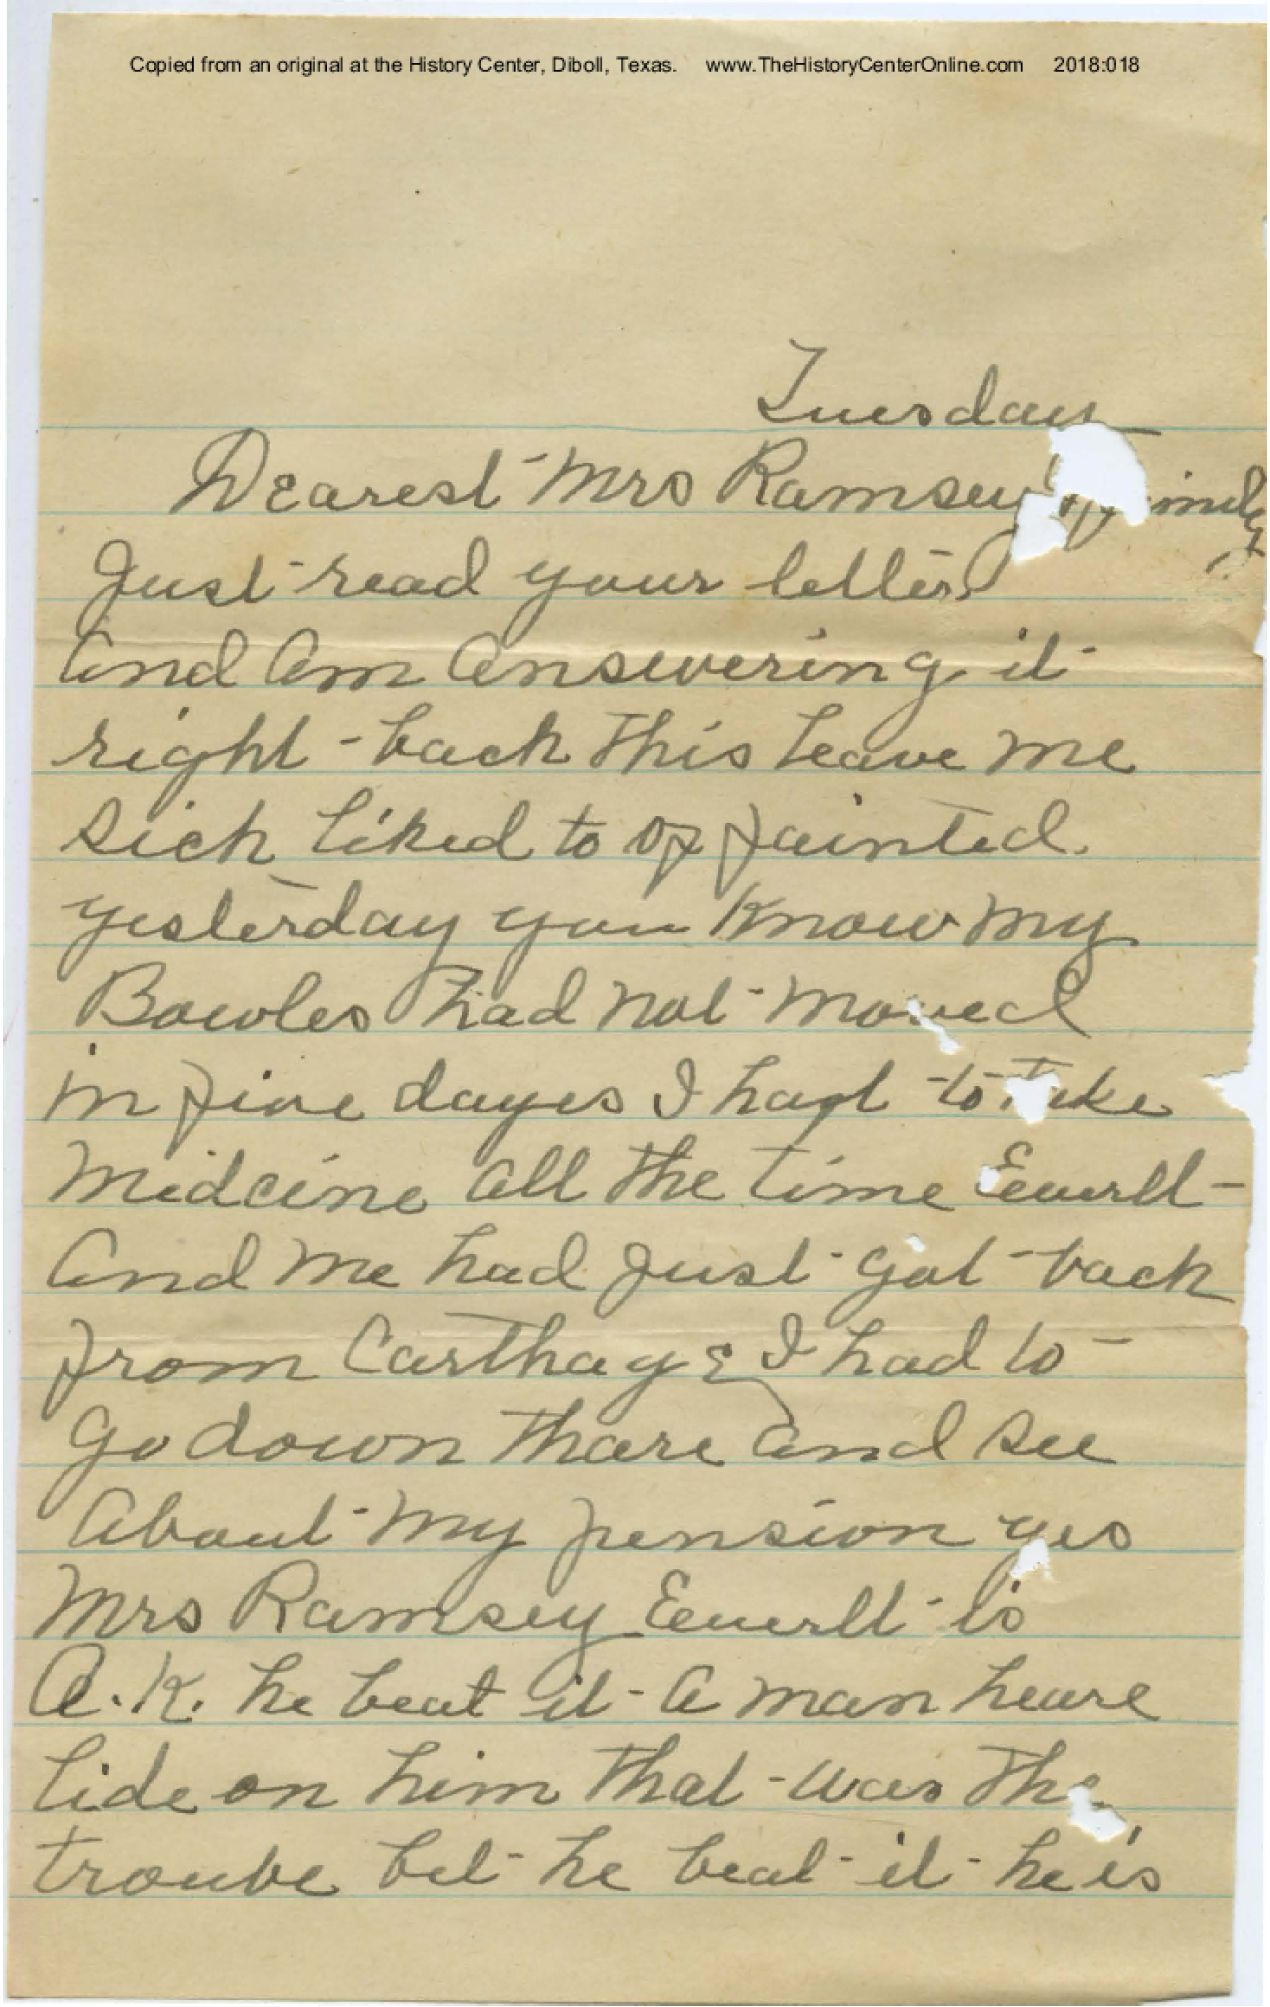 Copied from an original at the History Center, Diboll, Texas. www.TheHistoryCenterOnline.com 2018:018
Tuesday
Dearest Mrs Ramsey
Just read your letter
and am answering it
right back this leave me
sick liked to of fainted
yesterday you know my
Bowles had not moved
in five dayes I had to take
midcine all the time Everett
and me had just got back
from Carthage I had to
go down thare and see
about my pension yes
Mrs Ramsey Everett is
O.K. he beat it a man heare
lide on him that was the
troube bet he beat it he is